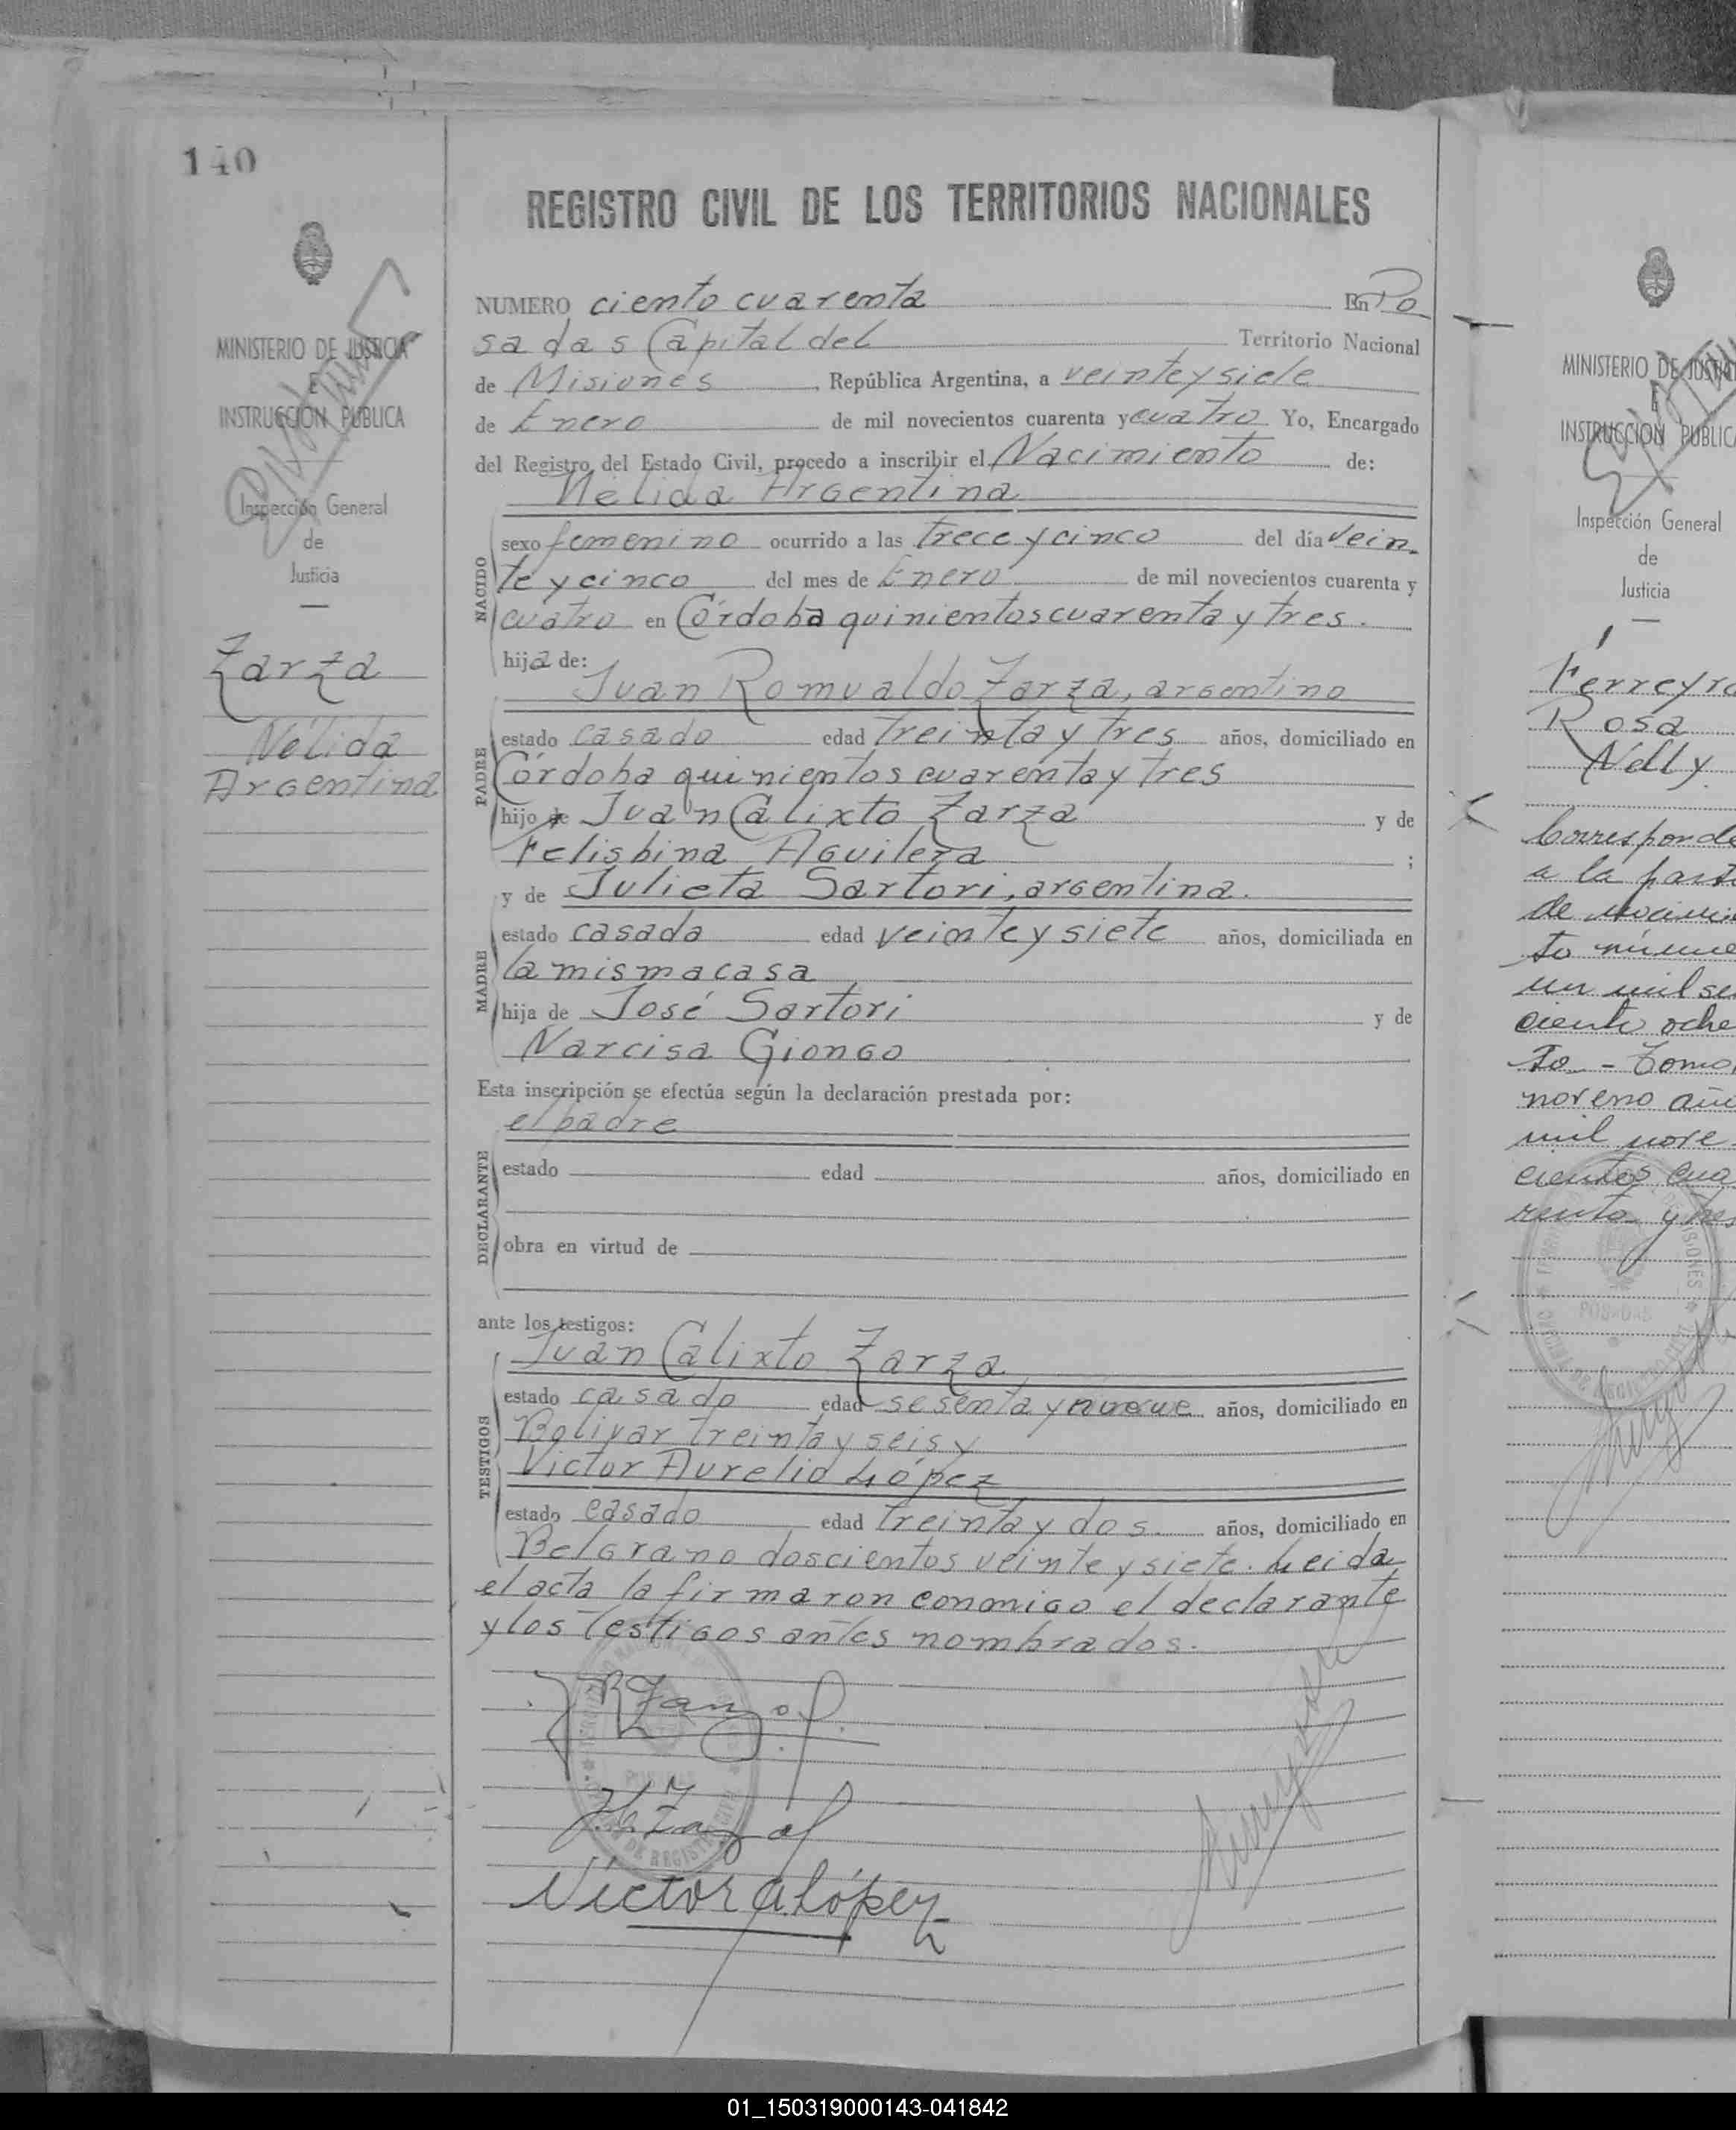 140
MINISTERIO DE JUSTICIA
E
INSTRUCCIÓN PUBLICA
Inspección General
de
Justicia
Zarza
Nélida
Argentina
REGISTRO CIVIL DE LOS TERRITORIOS NACIONALES
NUMERO ciento cuarenta En Po
sadas Capital del Territorio Nacional
de Misiones, República Argentina, a veinte y siete
de Enero de mil novecientos cuarenta y cuatro Yo, Encargado
del Registro del Estado Civil, procedo a inscribir el Nacimiento de:
Nélida Argentina
NACIDO
sexo femenino ocurrido a las trece y cinco del día vein-
te y cinco del mes de Enero de mil novecientos cuarenta y
cuatro en Córdoba quinientos cuarenta y tres.
hija de:
Juan Romualdo Zarza, argentino
PADRE
estado casado edad treinta y tres años, domiciliado en
Córdoba quinientos cuarenta y tres
hijo de Juan Calixto Zarza y de
Felisbina Aguilera ;
y de Julieta Sartori, argentina.
MADRE
estado casada edad veinte y siete años, domiciliada en
la misma casa
hija de José Sartori y de
Narcisa Giongo
Esta inscripción se efectúa según la declaración prestada por:
el padre
DECLARANTE
estado edad años, domiciliado en
obra en virtud de
ante los testigos:
Juan Calixto Zarza
TESTIGOS
estado casado edad sesenta y nueve años, domiciliado en
Bolivar treinta y seis y
Victor Aurelio López
estado casado edad treinta y dos. años, domiciliado en
Belgrano doscientos veinte y siete. Leida
el acta la firmaron conmigo el declarante
y los testigos antes nombrados.
Victor A López
MINISTERIO DE JUSTI
E
INSTRUCCIÓN PUBLIC
Inspección General
de
Justicia
Ferreyra
Rosa
Nelly
Corresponde
a la parti
de nacimien
to núme
un mil se
ciento oche
To - Tomo
noveno año
mil nove-
cientos cua
renta y tres
POSADAS
01_150319000143-041842